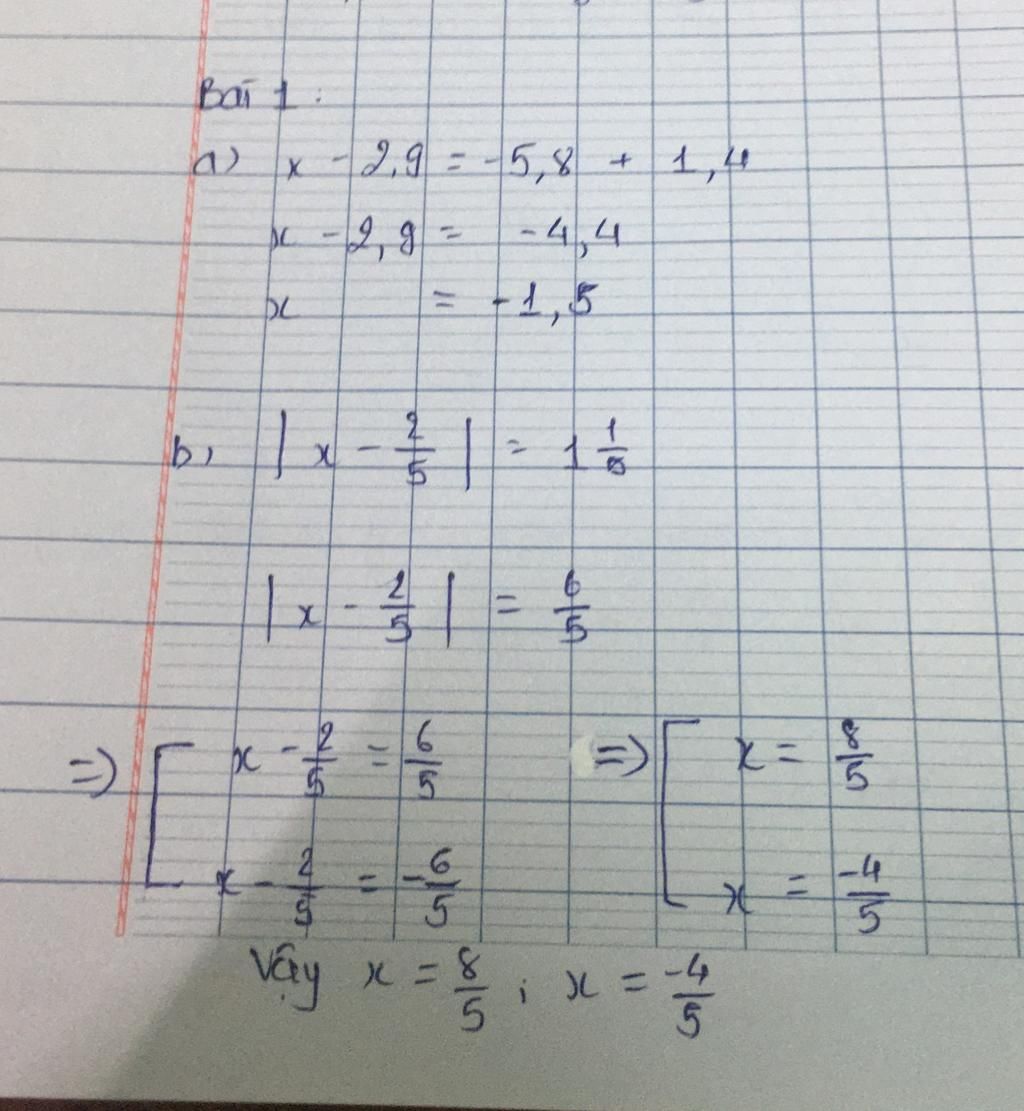 Bài 1:
a) x - 2,9 = -5,8 + 1,4
x - 2,9 = -4,4
x = -1,5
b, |x - 2/5| = 1 1/5
|x - 2/5| = 6/5
=> [ x - 2/5 = 6/5 => [ x = 8/5
x - 2/5 = -6/5 x = -4/5
Vậy x = 8/5 ; x = -4/5